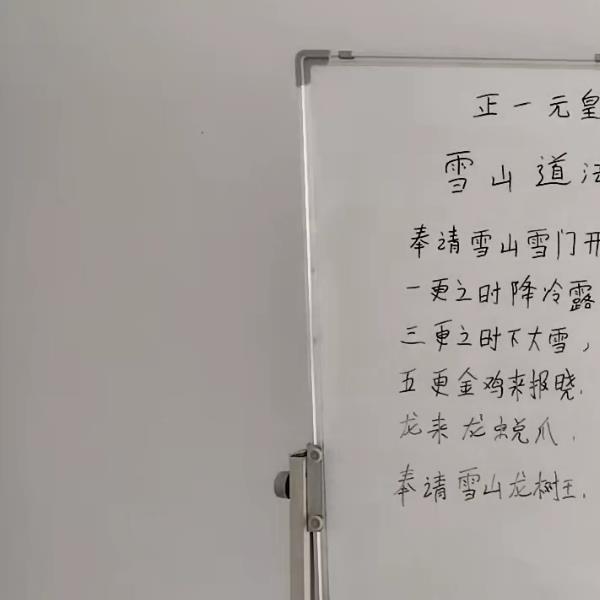 正一元皇
雪山道法
奉请雪山雪门开
一更之时降冷露
三更之时下大雪,
五更金鸡来报晓.
龙来龙蜕爪.
奉请雪山龙树王.